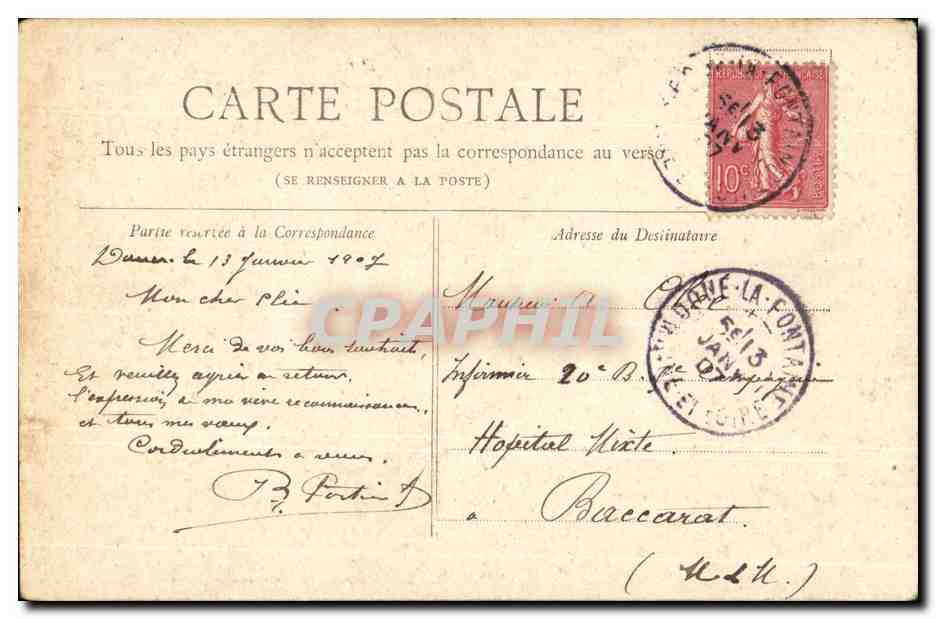 CARTE POSTALE
Tous les pays étrangers n'acceptent pas la correspondance au verso
(SE RENSEIGNER A LA POSTE)
RÉPUBLIQUE FRANÇAISE
10c
LA FONTAINE
13
JANV
Partie réservée à la Correspondance
le 13 Janvier 1907
Mon cher
Merci de vos bons souhaits
Et veuillez agréer en retour
l'expression de ma vive reconnaissance
et tous mes vœux.
Cordialement à vous.
B. Fortin
Adresse du Destinataire
Monsieur A.
Infirmier 20e B.
Hopital Mixte.
à Baccarat.
(M & M.)
LA-FONTAINE
13
JANV
07
ET-LOIRE
CPAPHIL